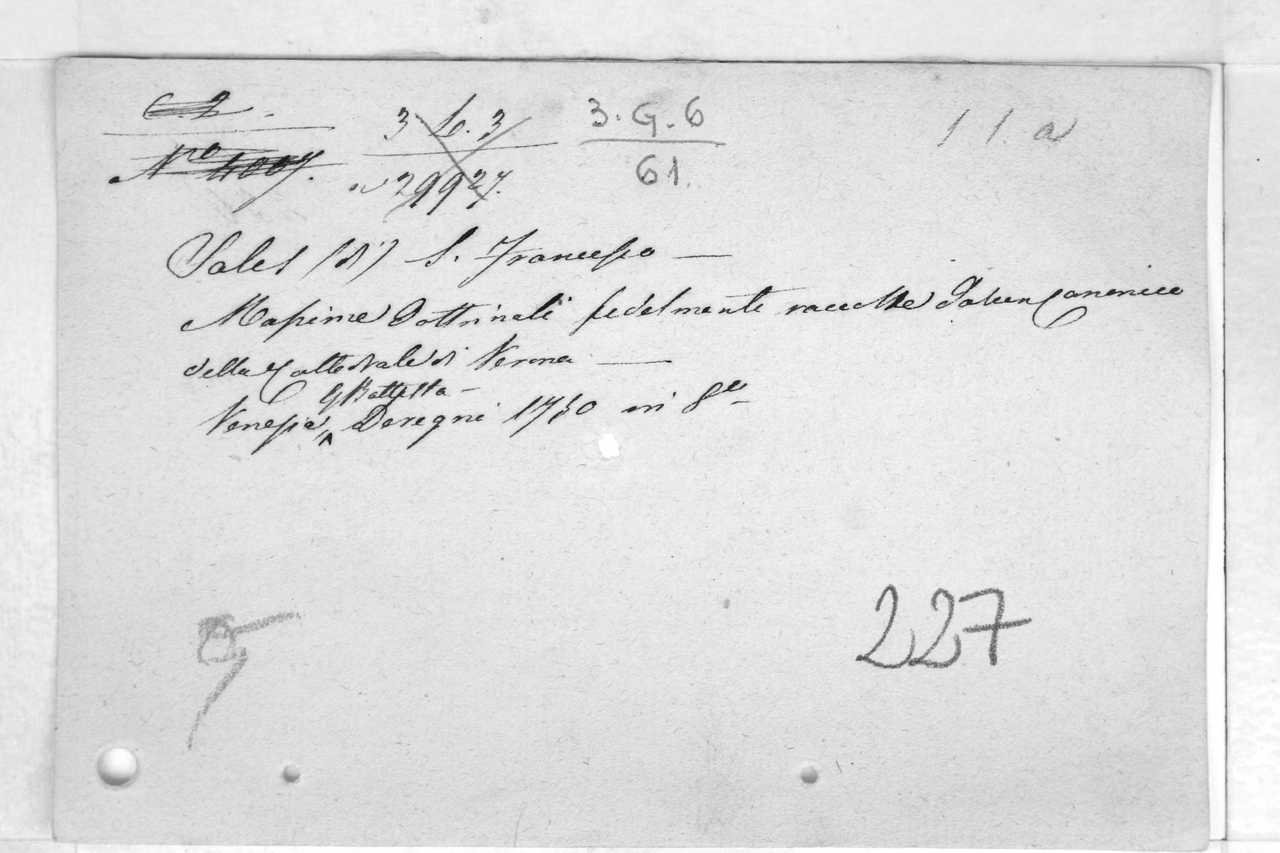 C. 2.
Nro 4007.
3 L. 3
n 29927.
3. G. 6
61.
11. a
Sales (di) S. Francesco —
Massime Dottrinali fedelmente raccolte da un Canonico
della Cattedrale di Verona —
G Battista —
Venezia, Deregni 1750 in 8o
227